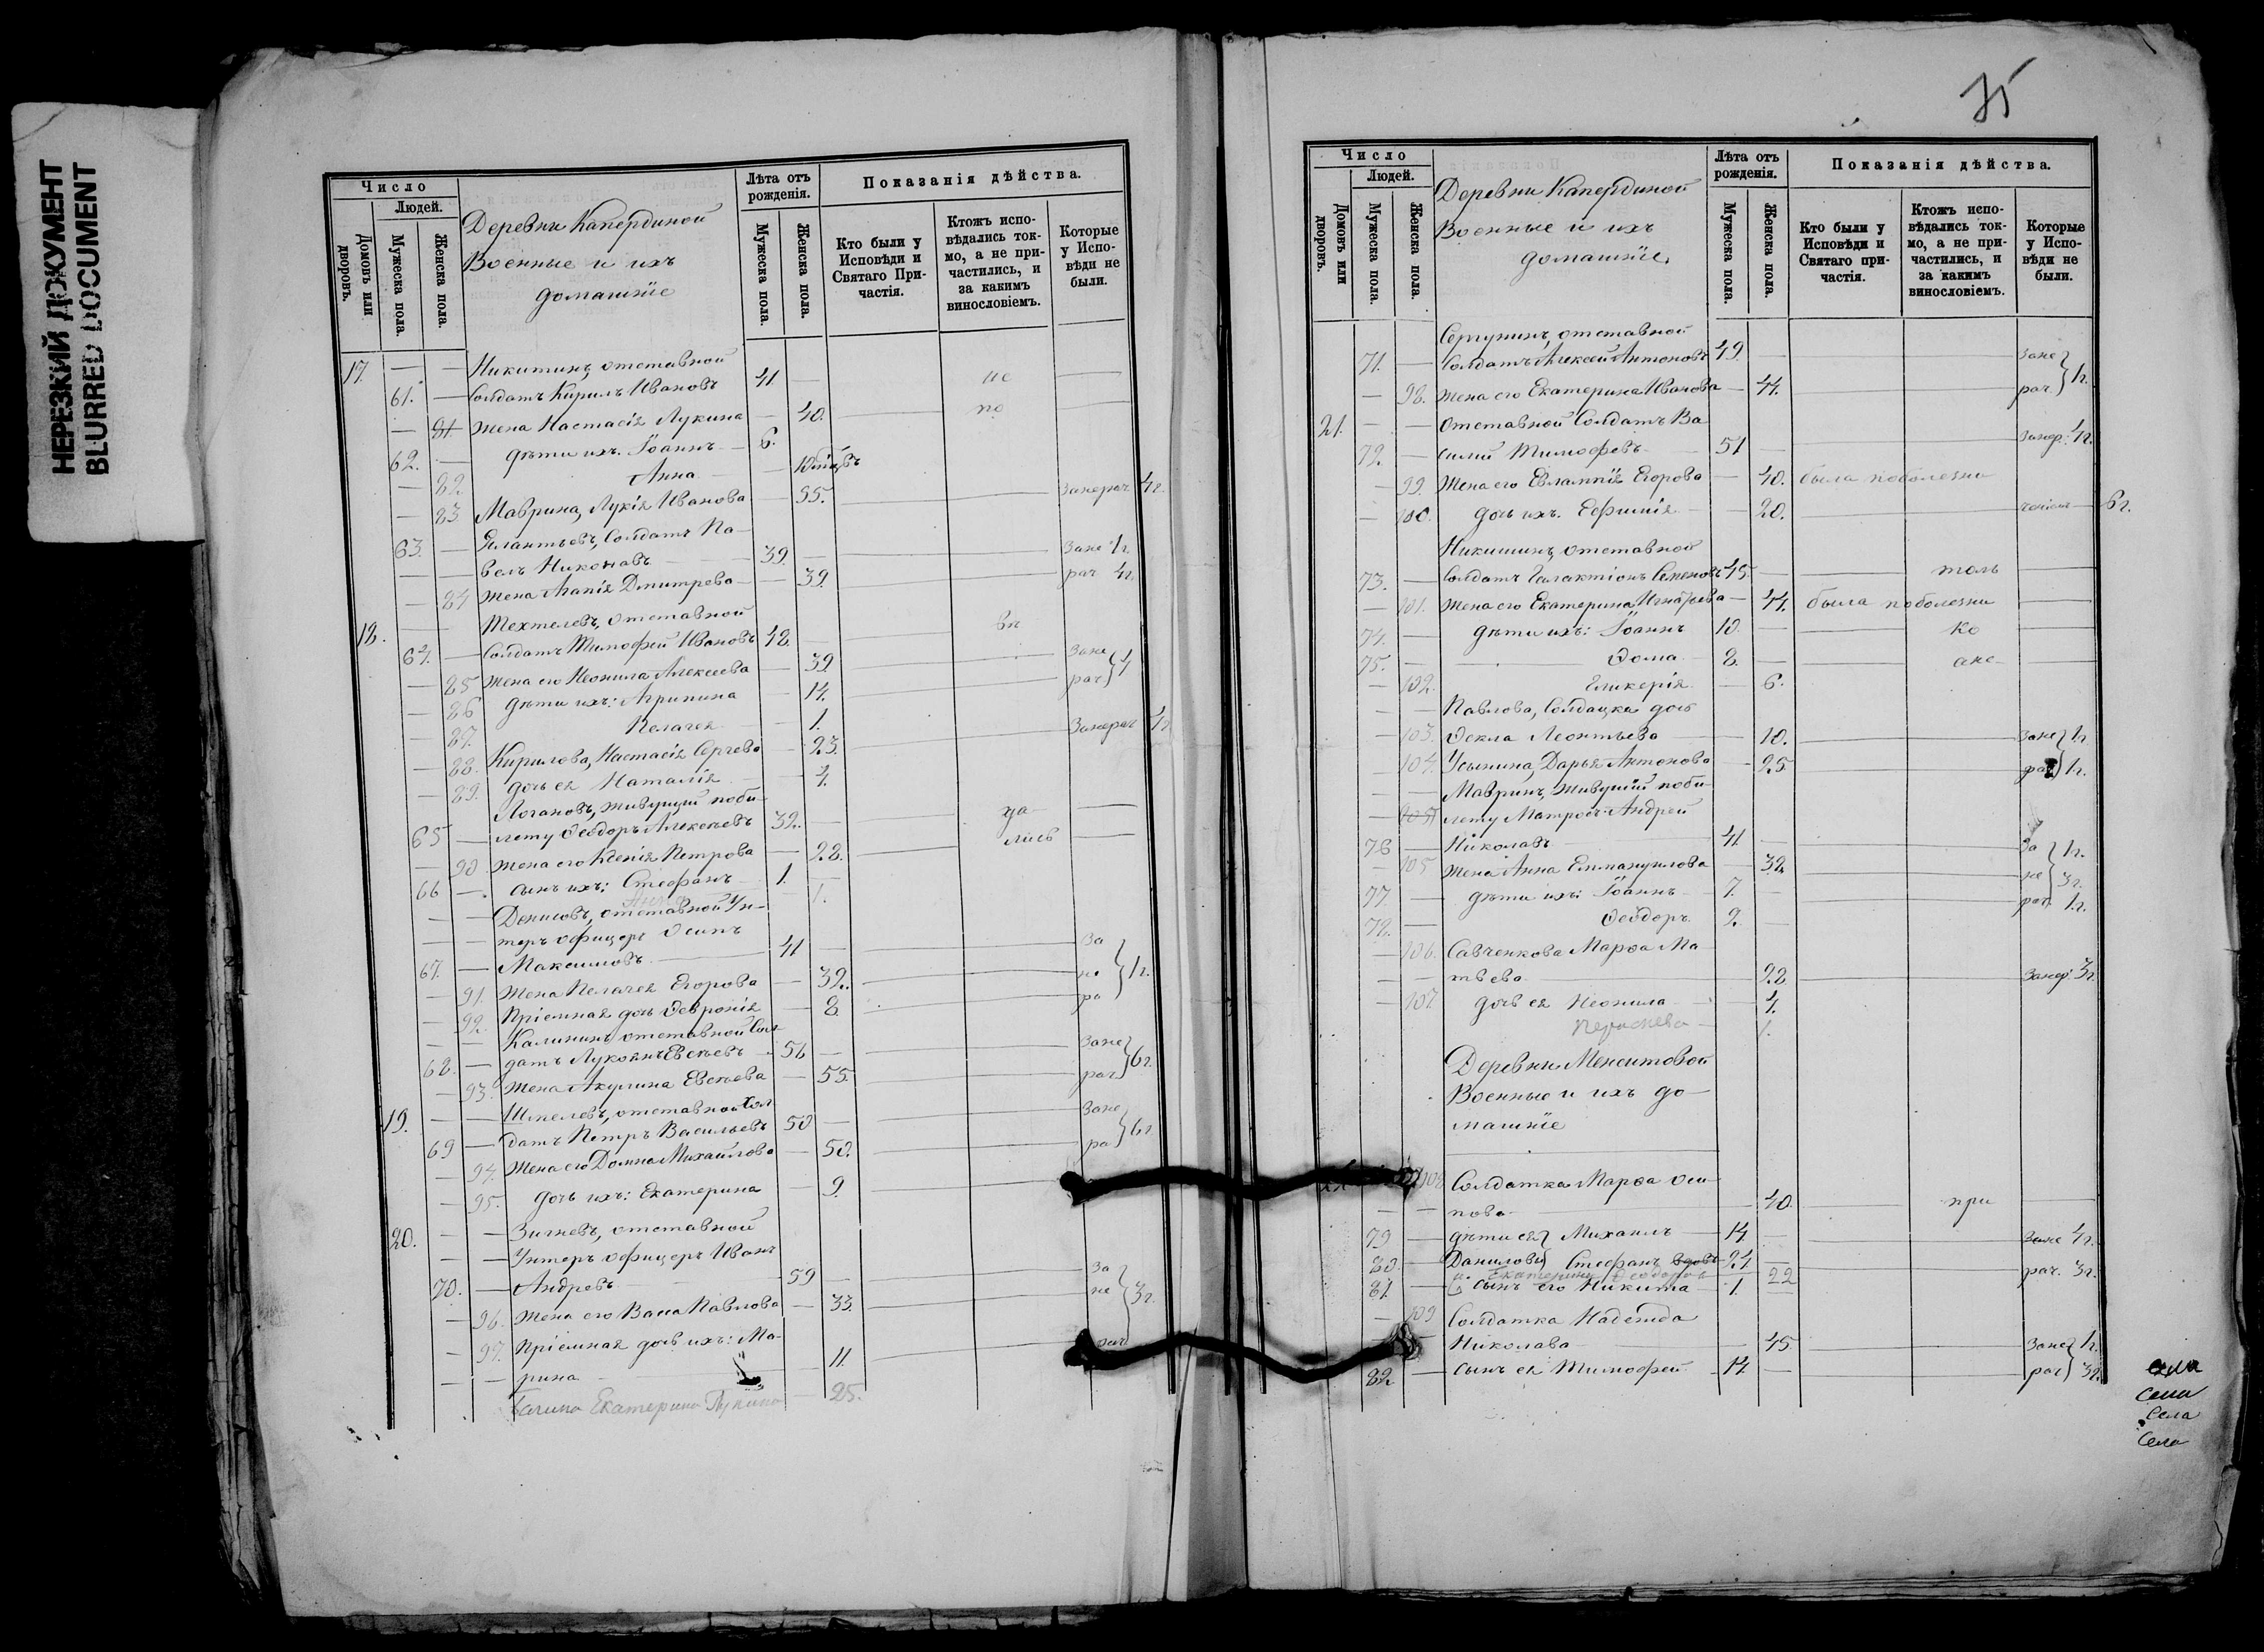 НЕРЕЗКИЙ ДОКУМЕНТ
BLURRED DOCUMENT
Число
Людей.
Домовъ или дворовъ.
Мужеска пола.
Женска пола.
Деревни Капердиной
Военные и ихъ
домашніе
Лѣта отъ рожденія.
Мужеска пола.
Женска пола.
Показанія дѣйства.
Кто были у Исповѣди и Святаго Причастія.
Ктожъ исповѣдались токмо, а не причастились, и за какимъ винословіемъ.
Которые у Исповѣди не были.
17. — — Никитинъ, отставной
61. — Солдатъ Кирилъ Ивановъ 41 — не —
— 81. жена Настасія Лукина — 40. по —
62. — дѣти ихъ: Іоаннъ — 6.
— 82. Анна —
— 83. Маврина, Лукія Иванова — 55. Занерач 4г.
— Елантьевъ, Солдатъ Па-
63. — велъ Никонавъ 39. — Зане 1г.
— 84 жена Агапія Дмитрева — 39. рач 4г.
18. Техтелевъ, отставной
64. — Солдатъ Тимофей Ивановъ 48. — вп
— 85 жена его Неонила Алексеева — 39 Зане
— 86 дѣти ихъ: Агрипина — 14. рач
— 87. Пелагея — 1.
— 88. Кирилова, Настасія Сергева — 23. Занерач 1г.
— 89. дочь ея Наталія — 4.
Логановъ, живущій поби-
65 — лету Ѳеодоръ Алексѣевъ 32. — да —
— 90. жена его Ксенія Петрова — 28. лись —
66 — сынъ ихъ: Стефанъ 1. —
Анна 1.
— — Денисовъ, отставной Ун-
— — теръ офицеръ Осипъ
67. — Максимовъ — 41 — За
— 91. жена Пелагея Егорова — 32. не 1г.
— 92. Пріемная дочь Ѳевронія — 8 ра
— — Калининъ отставной Сол
68. — датъ Лукоянъ Евсѣевъ 56 — Зане
— 93. жена Акулина Евсѣева — 55. рач 6г.
19. — — Шмелевъ, отставной Сол
69 — датъ Петръ Васильевъ 50 — Зане
— 94. жена его Домна Михаилова — 50. ра 6г.
— 95. дочь ихъ: Екатерина — 9.
20. — — Зигневъ, отставной
— — Унтеръ офицеръ Иванъ
70. — Андревъ 59 — За
— 96. жена его Васса Павлова — 33. не 3г.
— 97. Пріемная дочь ихъ: Ма-
— — рина 11. рач
Екатерина Лукина 25.
75
Число
Людей.
Домовъ или дворовъ.
Мужеска пола.
Женска пола.
Деревни Капердиной
Военные и ихъ
домашніе.
Лѣта отъ рожденія.
Мужеска пола.
Женска пола.
Показанія дѣйства.
Кто были у Исповѣди и Святаго причастія.
Ктожъ исповѣдались токмо, а не причастились, и за какимъ винословіемъ.
Которые у Исповѣди не были.
Сергунинъ, отставной
71. — Солдатъ Алексей Антоновъ 49 — Зане
— 98. жена его Екатерина Иванова — 44. рач 1г.
21. — — отставной Солдатъ Ва
72. — силій Тимофевъ 51 — Занер. 1г.
— 99. жена его Евлампія Егорова — 40. была поболезни
— 100. дочь ихъ. Ефимія — 20. 6г.
Никишинъ, отставной
73. — Солдатъ Галактіонъ Семеновъ 45. — толь —
— 101. жена его Екатерина Игнатьева — 44. была поболезни —
74. — дѣти ихъ: Іоаннъ 10. — ко —
75. — Ѳома 8. — аке —
— 102. Гликерія — 6.
— — Павлова, Солдацка дочь
— 103. Ѳекла Леонтьева — 10. Зане 1г.
— 104. Усынина, Дарья Антонова — 25. рач 1г.
— — Мавринъ, живущій поби-
— 105 лету Матросъ Андрей
76 — Николавъ 41 — За 1г.
— 105 жена Анна Еммануилова — 32. не 3г.
77. — дѣти ихъ: Іоаннъ 7. — рач. 1г.
78. — Ѳеодоръ 2. —
— 106. Савченкова Марѳа Ма-
— твѣева 28 Занер. 3г.
— 107 дочь ея Неонила — 4.
Параскева — 1.
Деревни Менситовой
Военные и ихъ до-
машніе
108 Солдатка Марѳа Оси-
— — пова — 40. при —
79 — дѣти ея Михаилъ — 14. — Зане 1г.
80. — Даниловы Стефанъ вдовъ 21 — рач. 3г.
Екатерина Ѳеодоров 22
81. — сынъ его Никита — 1.
— 109 Солдатка Надежда
Николава — 45. Зане 1г.
82 — сынъ ея Тимофей — 14. — рач 3г.
села
Села
Села
Села